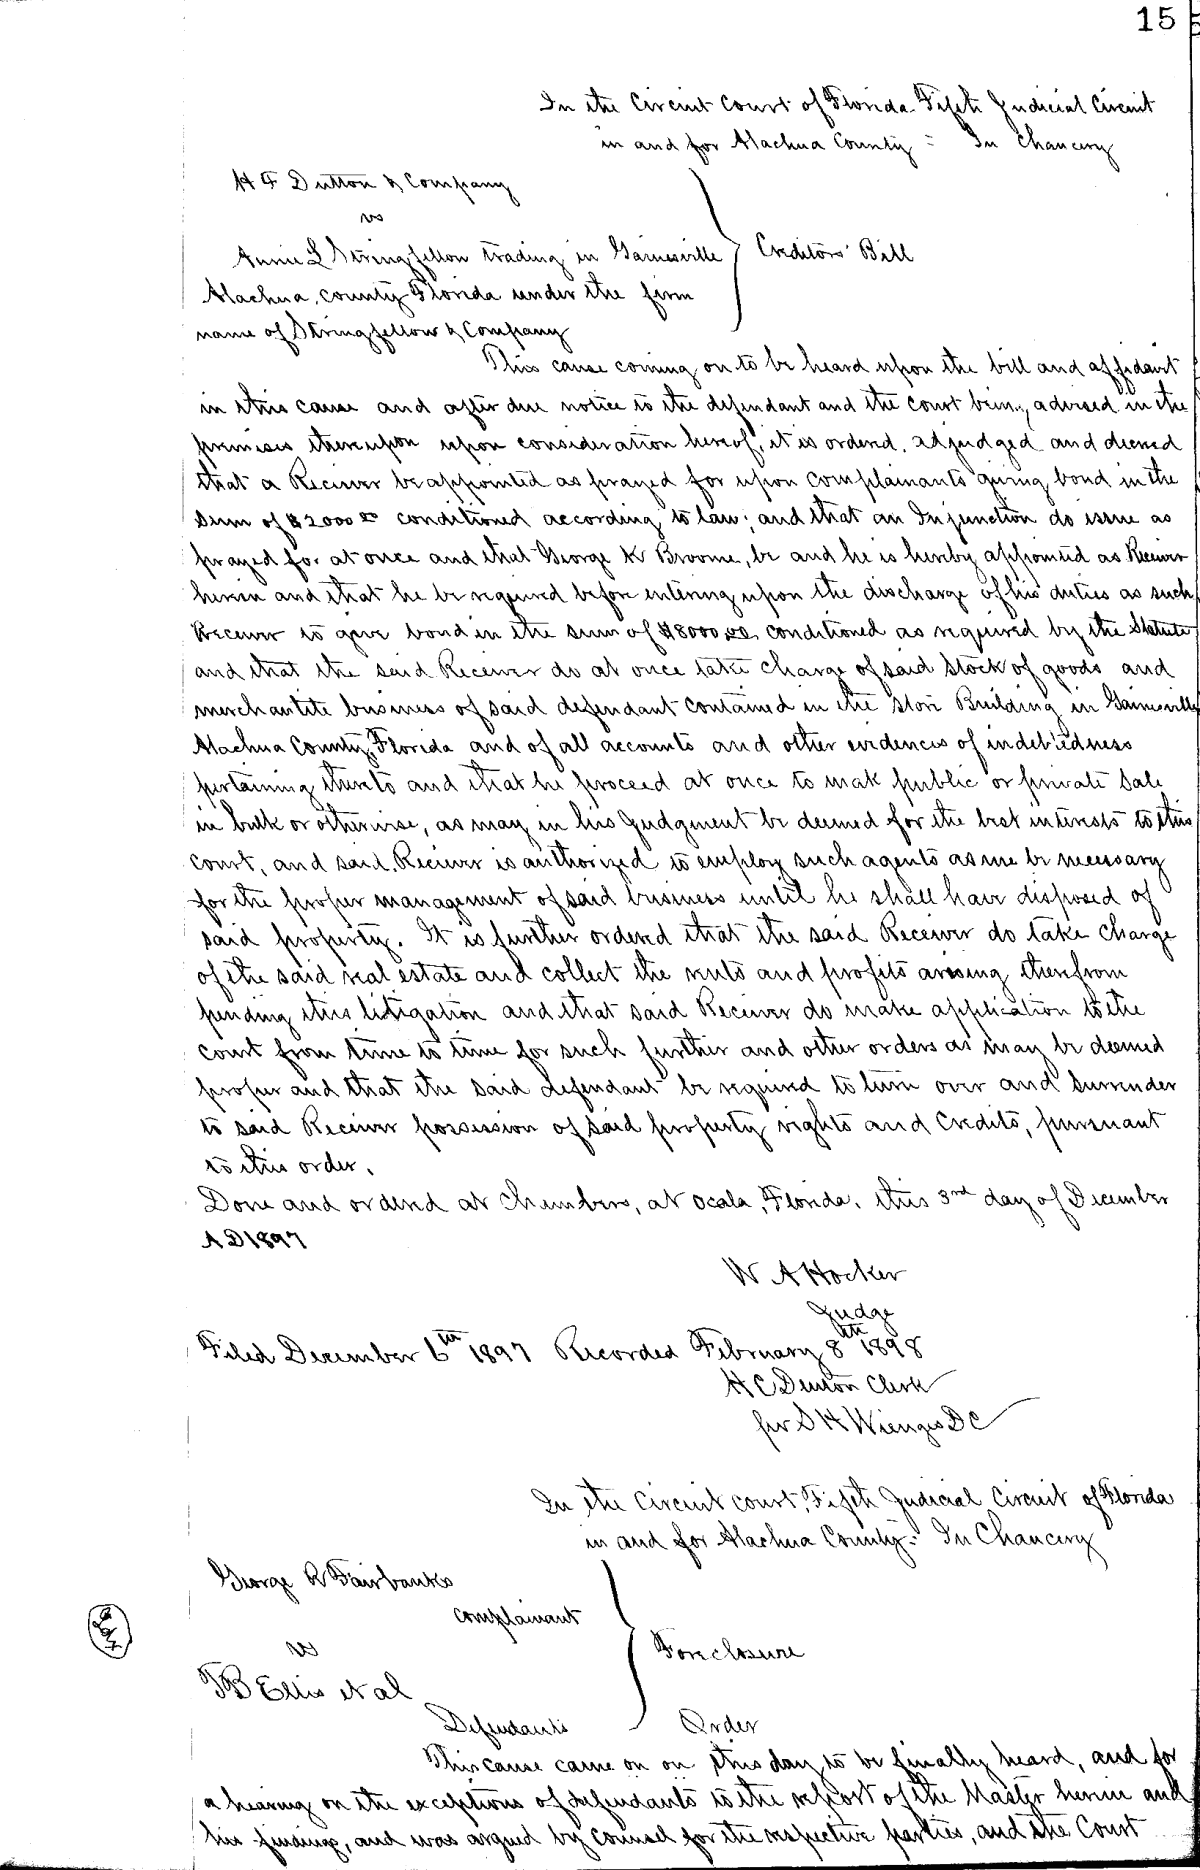 15
In the Circuit Court of Florida Fifth Judicial Circuit
in and for Alachua County = In Chancery
H F Dutton & Company
vs
Annie L Stringfellow trading in Gainesville
Creditors' Bill
Alachua, county Florida under the firm
name of Stringfellow & Company
This cause coming on to be heard upon the bill and affidavit
in this cause and after due notice to the defendant and the court being advised in the
premises thereupon upon consideration hereof, it is ordered, adjudged and decreed
that a Receiver be appointed as prayed for upon complainants giving bond in the
sum of $2000 00 conditioned according to law; and that an Injunction do issue as
prayed for at once and that George K Broome, be and he is hereby appointed as Receiver
herein and that he be required before entering upon the discharge of his duties as such
Receiver to give bond in the sum of $8000.00, conditioned as required by the Statute
and that the said Receiver do at once take charge of said stock of goods and
merchantite business of said defendant contained in the store Building in Gainesville
Alachua County, Florida and of all accounts and other evidences of indebtedness
pertaining thereto and that he proceed at once to make public or private sale
in bulk or otherwise, as may in his Judgment be deemed for the best interests to this
court, and said Receiver is authorized to employ such agents as me be necessary
for the proper management of said business until he shall have disposed of
said property. It is further ordered that the said Receiver do take charge
of the said real estate and collect the rents and profits arising therefrom
pending this litigation and that said Receiver do make application to the
court from time to time for such further and other orders as may be deemed
proper and that the said defendant be required to turn over and surrender
to said Receiver possession of said property rights and credits, pursuant
to this order.
Done and ordered at Chambers, at Ocala, Florida, this 3rd day of December
A D 1897
W A Hocker
Judge
Filed December 6th 1897 Recorded February 8th 1898
H C Denton Clerk
per S H Wienges DC
In the Circuit court, Fifth Judicial Circuit of Florida
in and for Alachua County = In Chancery
George R Fairbanks
complainant
vs
Foreclosure
T B Ellis et al
Defendants Order
This cause came on on this day to be finally heard, and for
a hearing on the exceptions of defendants to the report of the Master herein and
his findings, and was argued by counsel for the respective parties, and the Court